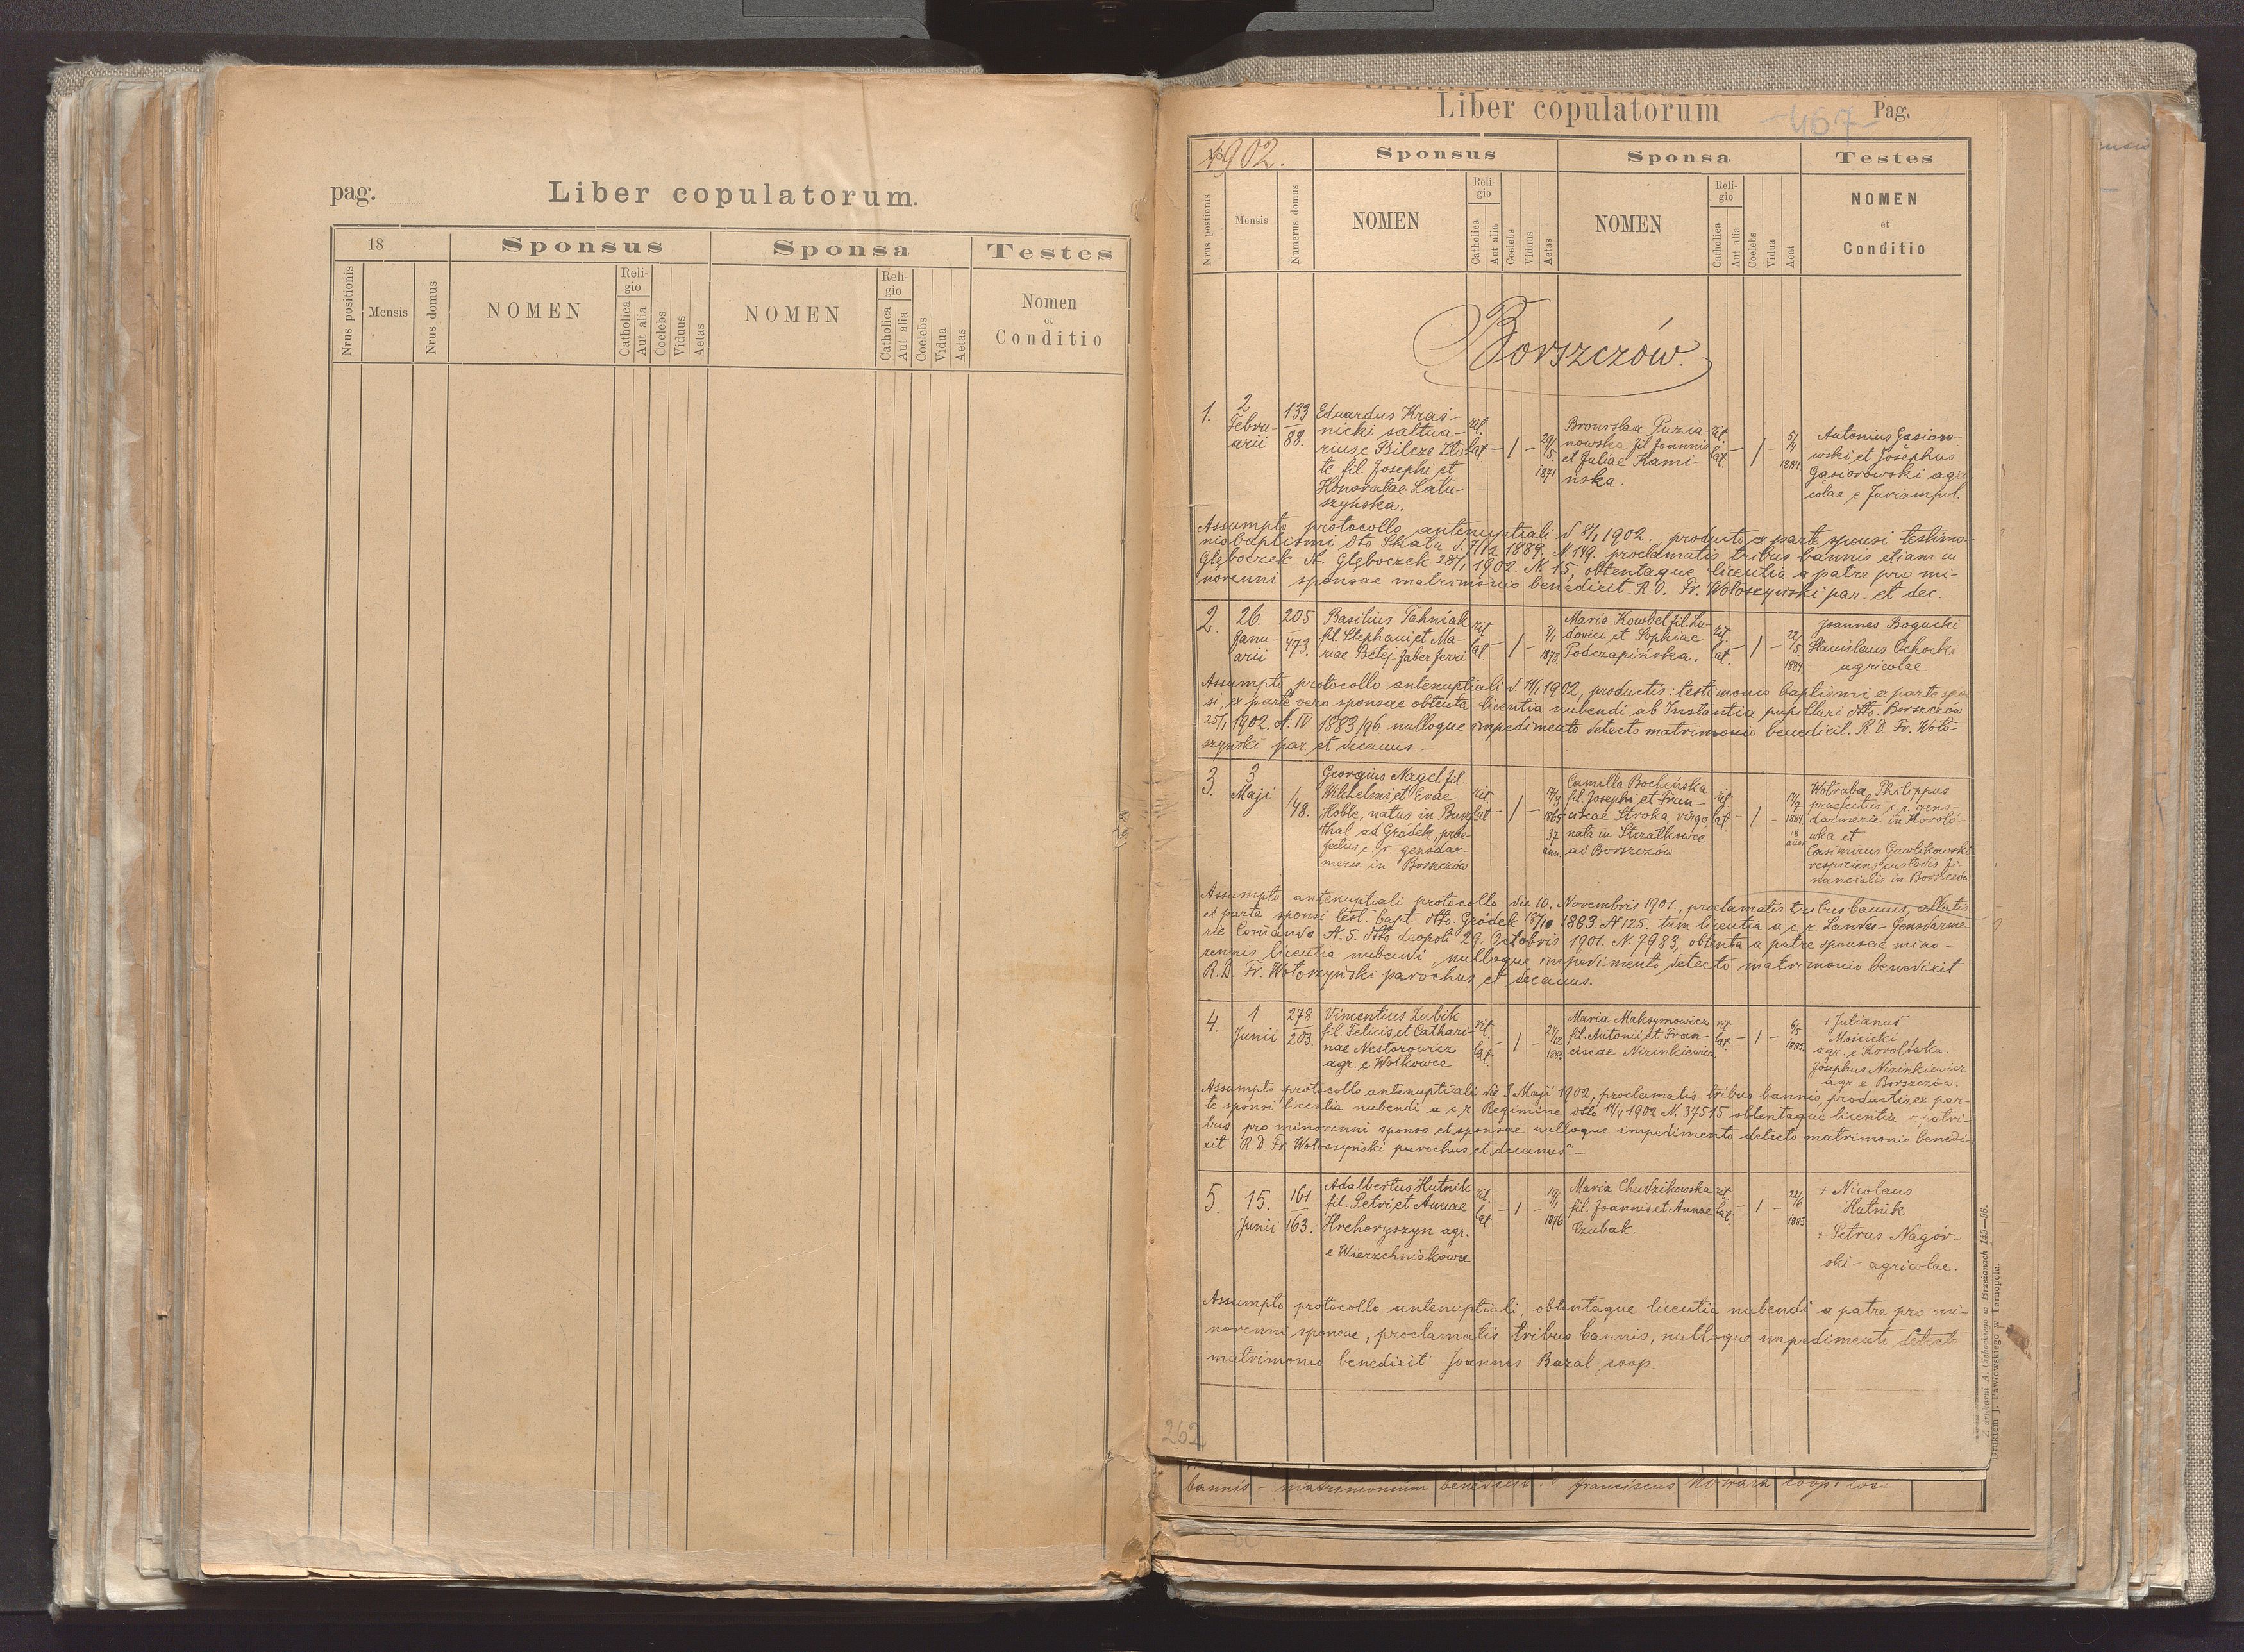 pag.
Liber copulatorum.
18
Sponsus
Sponsa
Testes
Nrus positionis
Mensis
Nrus domus
NOMEN
Religio
Catholica
Aut alia
Coelebs
Viduus
Aetas
NOMEN
Religio
Catholica
Aut alia
Coelebs
Vidua
Aetas
Nomen
et
Conditio
Liber copulatorum
-467-
Pag.
1902.
Sponsus
Sponsa
Testes
Nrus postionis
Mensis
Numerus domus
NOMEN
Reli-
gio
Catholica
Aut alia
Coelebs
Viduus
Aetas
NOMEN
Reli-
gio
Catholica
Aut alia
Coelebs
Vidua
Aeat
NOMEN
et
Conditio
Borszczów.
1.
2
Febru-
arii
133
88.
Eduardus Kraś-
nicki saltua-
rius e Bilcze Zło-
te fil. Josephi et
Honoratae Latu-
szyńska.
rit.
lat
1
29/5
1871
Bronislaa Puzia-
nowska fil Joannis
et Juliae Kami-
ńska.
rit.
lat.
1
5/4
1884
Antonius Gąsioro-
wski et Josephus
Gąsiorowski agri
colae e Juriampol.
Assumpto protocollo antenuptiali d. 8/1 1902. producto ex parte sponsi testimo-
nio baptismi dto Skała d. 7/12 1889. N. 149. proclamatis tribus bannis etiam in
Głęboczek A. Głęboczek 28/1 1902 N. 15, obtentaque licentia a patre pro mi-
norenni sponsae matrimonio benedixit. R.D. Fr. Wołoszyński par. et dec.
2.
26.
Janu-
arii
205
473.
Basilius Tahniak
fil. Stephani et Ma-
riae Betej. faber ferri
rit.
lat.
1
2/1
1873
Maria Kowbel fil. Lu-
dovici et Sophiae
Podczapińska.
rit.
lat.
1
22/5
1884
Joannes Bogucki
Stanislaus Ochocki
agricolae
Assumpto protocollo antenuptiali d. 11/1 1902, productis: testimonio baptismi ex parte spon
si, ex parte vero sponsae obtenta licentia nubendi ab Instantia pupillari dtto. Borszczów
25/1 1902. A. IV 1883/96 nulloque impedimento detecto matrimonio benedixit. R.D. Fr. Woło-
szyński par. et decanus. -
3.
3
Maji
48.
Georgius Nagel fil.
Wilhelmi et Evae
Hoble, natus in Burg
thal ad Gródek, prae-
fectus c. r. gensdar-
merie in Borszczów
rit.
lat
1
17/9
1865
37
ann
Camilla Bocheńska
fil. Josephi et Fran-
ciscae Stroka, virgo
nata in Strzałkowce
ad Borszczów
rit
lat.
1
14/7
1884
18
ann
Wotruba Philippus
praefectus c. r. gens-
darmerie in Koroló-
wka et
Casimirus Gawlikowski
respiciens custodis fi-
nancialis in Borszczów
Assumpto antenuptiali protocollo die 10. Novembris 1901., proclamatis tribus bannis, allatis
ex parte sponsi test. bapt. dtto. Gródek 18/10 1883. N 125. tum licentia a c. r. Landes-Gensdarme-
rie Comando N. 5. dtto Leopoli 29. Octobris 1901. N. 7983, obtenta a patre sponsae mino-
rennis licentia nubendi, nulloque impedimento detecto matrimonio benedixit
R.D. Fr. Wołoszyński parochus et decanus.
4.
1
Junii
278
203.
Vincentius Zubik
fil. Felicis et Cathari-
nae Nestorowicz
agr. e Wołkowce
rit.
lat.
1
21/12
1883
Maria Maksymowicz
fil. Antonii et Fran-
ciscae Nizinkiewicz
rit.
lat.
1
6/5
1885.
+ Julianus
Mościcki
agr. e Korolówka.
Josephus Nizinkiewicz
agr. e Borszczów.
Assumpto protocollo antenuptiali die 3 Maji 1902, proclamatis tribus bannis, productis ex par-
te sponsi licentia nubendi a c. r. Regimine dtto 14/4 1902 N. 37515 obtentaque licentia a patri-
bus pro minorenni sponso et sponsae nulloque impedimento detecto matrimonio benedi-
xit R.D. Fr. Wołoszyński parochus et decanus. -
5.
15.
Junii
161
163.
Adalbertus Hutnik
fil. Petri et Annae
Hrehoryszyn agr.
e Wierzchniakowce
rit.
lat.
1
1876
Maria Chudzikowska
fil. Joannis et Annae
Czubak.
rit.
lat.
1
22/6
1885
+ Nicolaus
Hutnik
+ Petrus Nagór-
ski - agricolae.
Assumpto protocollo antenuptiali, obtentaque licentia nubendi a patre pro mi-
norenni sponsae, proclamatis tribus bannis, nulloque impedimento detecto
matrimonio benedixit Joannes Bazal coop.
262
Z drukarni A. Cichockiego w Brzeżanach 149—96.
Drukiem J. Pawłowskiego w Tarnopolu.
bannis - matrimonium benedixit Franciscus Nowara coop.